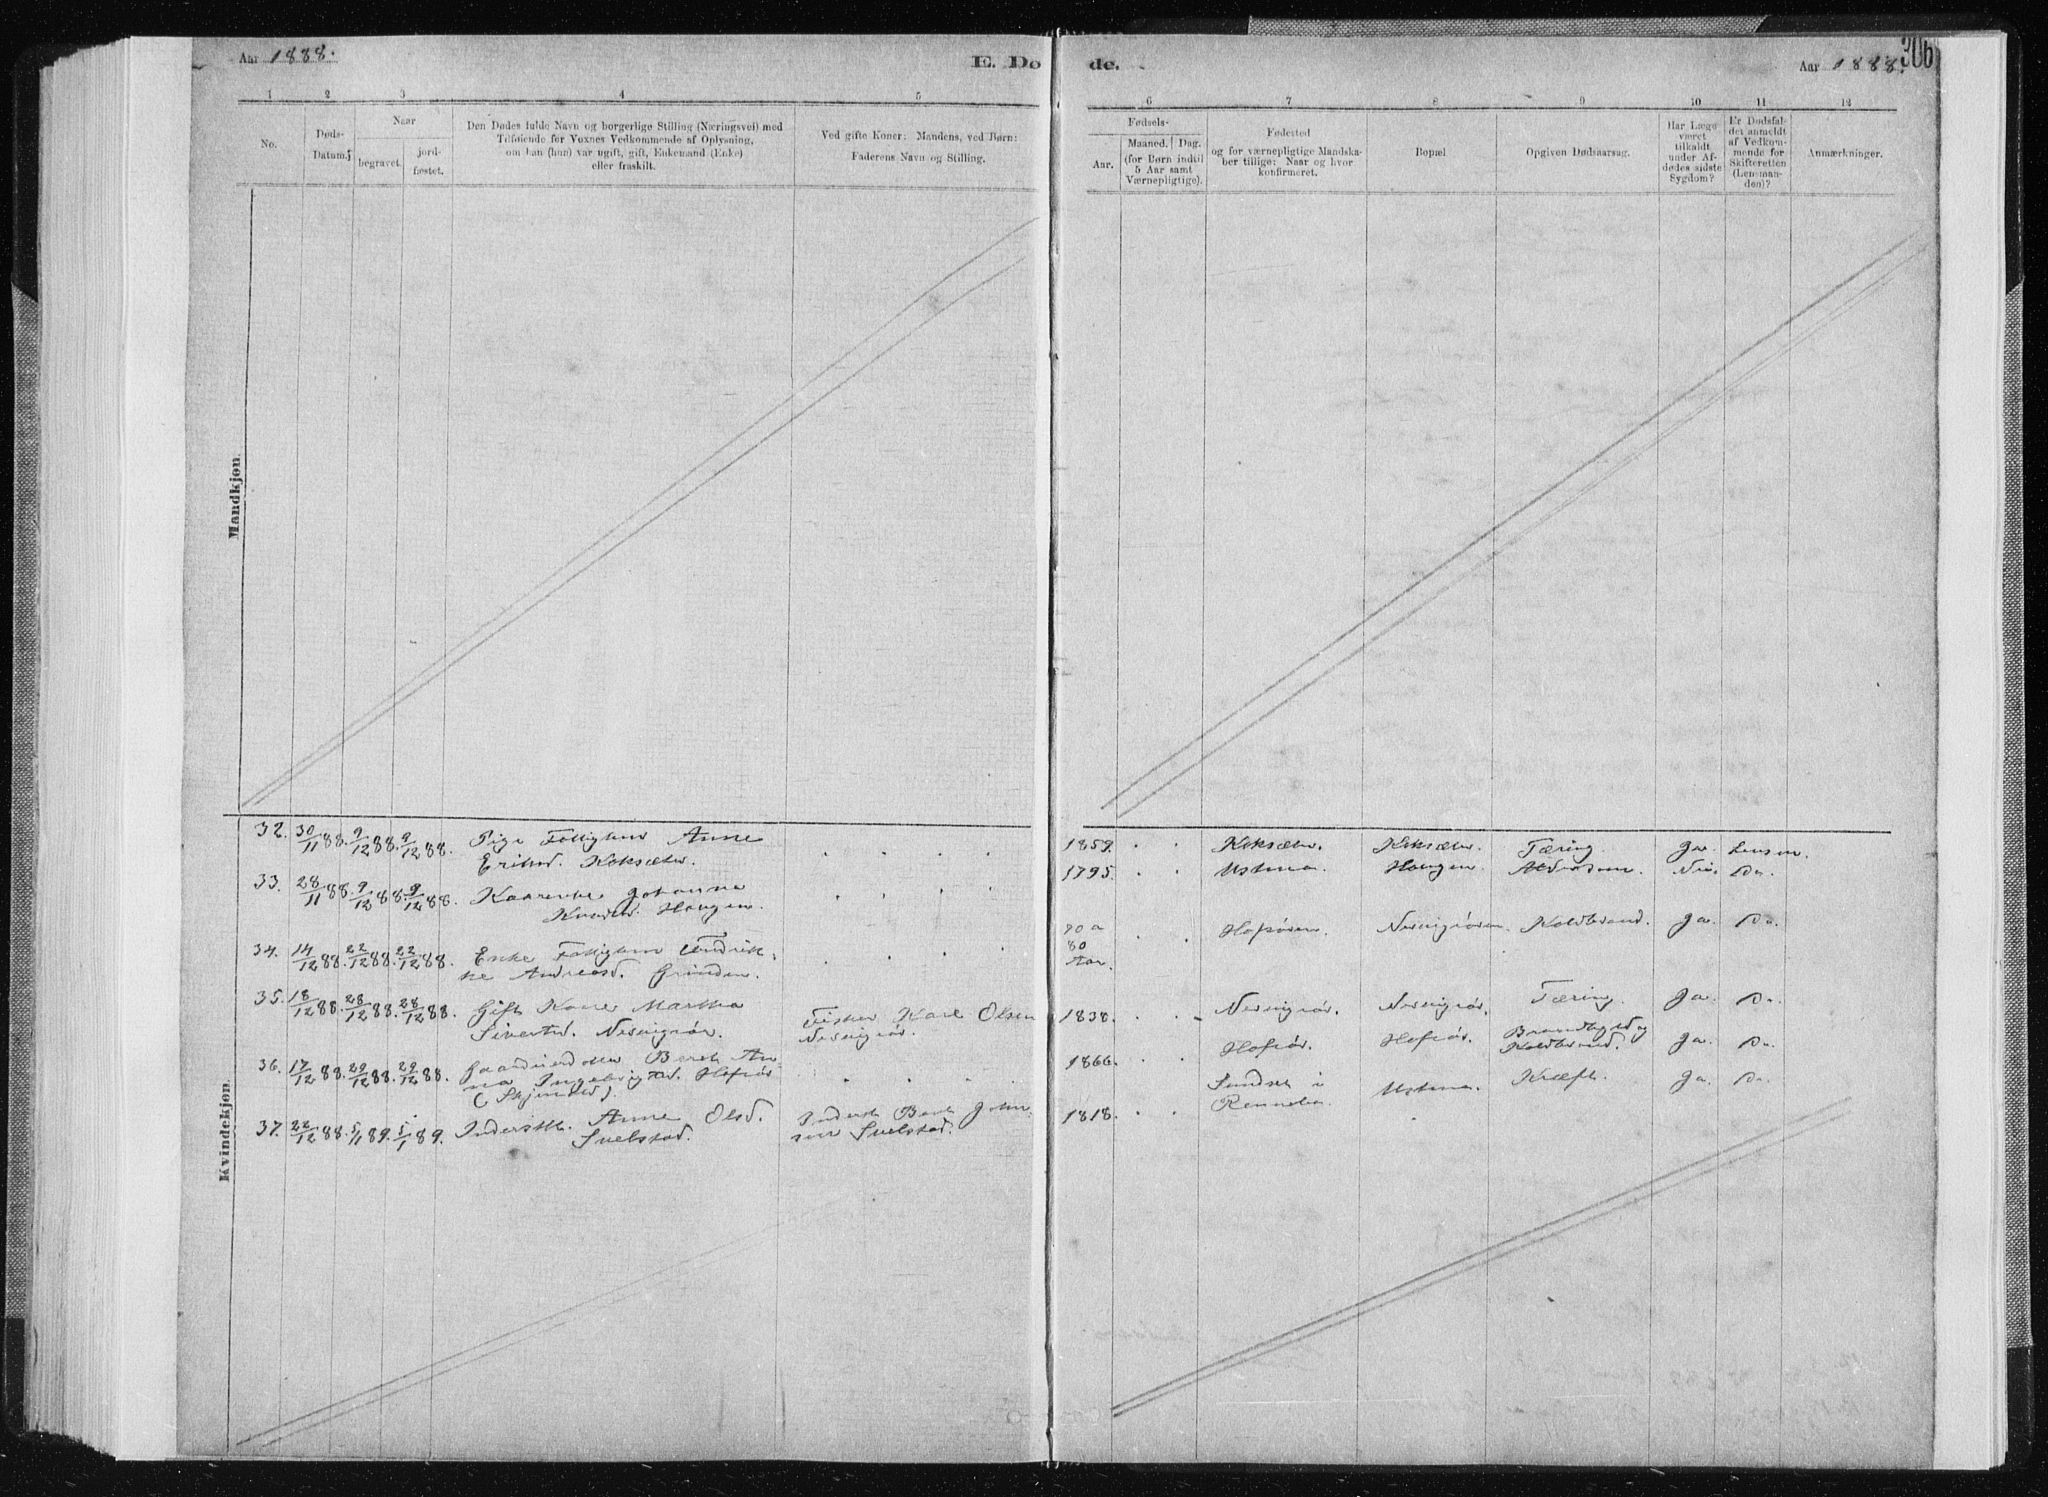 Aar 1888.
E. Dø
de.
Aar 1888.
306
1 2 3 4 5
6 7 8 9 10 11 12
No.
Døds-
Datum.
Naar
begravet.
jord-
fæstet.
Den Dødes fulde Navn og borgerlige Stilling (Næringsvei) med
Tilføiende for Voxnes Vedkommende af Oplysning,
om han (hun) var ugift, gift, Enkemand (Enke)
eller fraskilt.
Ved gifte Koner: Mandens, ved Børn:
Faderens Navn og Stilling.
Fødsels-
Aar.
Maaned. Dag.
(for Børn indtil
5 Aar samt
Værnepligtige).
Fødested
og for værnepligtige Mandska-
ber tillige: Naar og hvor
konfirmeret.
Bopæl
Opgiven Dødsaarsag.
Har Læge
været
tilkaldt
under Af-
dødes sidste
Sygdom?
Er Dødsfal-
det anmeldt
af Vedkom-
mende for
Skifteretten
(Lensman-
den)?
Anmærkninger.
Mandkjøn.
Kvindekjøn.
32. 30/11 88. 9/12 88. 9/12 88. Pige Anne
Koksæter.
1859. Koksæter. Koksæter. Tæring. Ja.
33. 28/11 88. 9/12 88. 9/12 88. Johanna
Haugen.
1795. Ustma. Haugen. Nei. Do.
34. 14/12 88. 22/12 88. 22/12 88. Enke
ke Andreasd. Grinden.
80
Aar.
Koldbrand. Ja. Do.
35. 18/12 88. 28/12 88. 28/12 88. Gift Kone Martha
Sivertsd.
Fisker Karl Olsen
1838. Tæring. Ja. Do.
36. 17/12 88. 29/12 88. 29/12 88. Gaardmandsdtr Berit An-
na Ingebrigtsd. Hofsør
1866. Hofsør. Hofsør.
Koldbrand. Ja. Do.
37. 22/12 88. 5/1 89. 5/1 89. Anne Olsd.
Svelstad.
Inderst John-
sen Svelstad.
1818. Sundset i
Rennebu. Ustma. Kræft. Ja. Do.